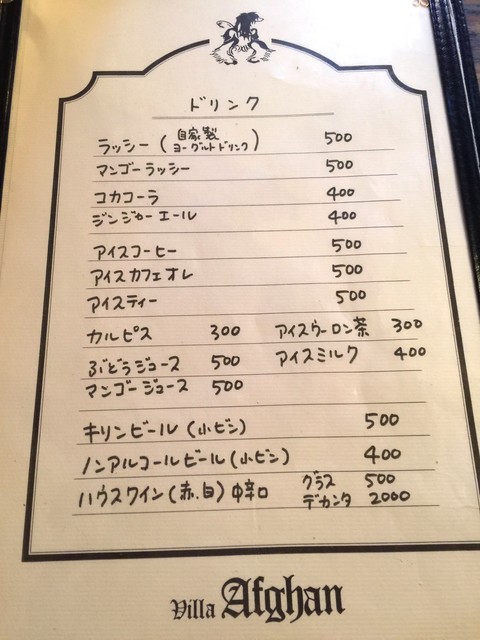 ドリンク
ラッシー (自家製ヨーグルトドリンク) 500
マンゴーラッシー 500
コカコーラ 400
ジンジャーエール 400
アイスコーヒー 500
アイスカフェオレ 500
アイスティー 500
カルピス 300 アイスウーロン茶 300
ぶどうジュース 500 アイスミルク 400
マンゴージュース 500
キリンビール (小ビン) 500
ノンアルコールビール (小ビン) 400
ハウスワイン (赤.白) 中辛口 グラス 500
デカンタ 2000
Villa Afghan